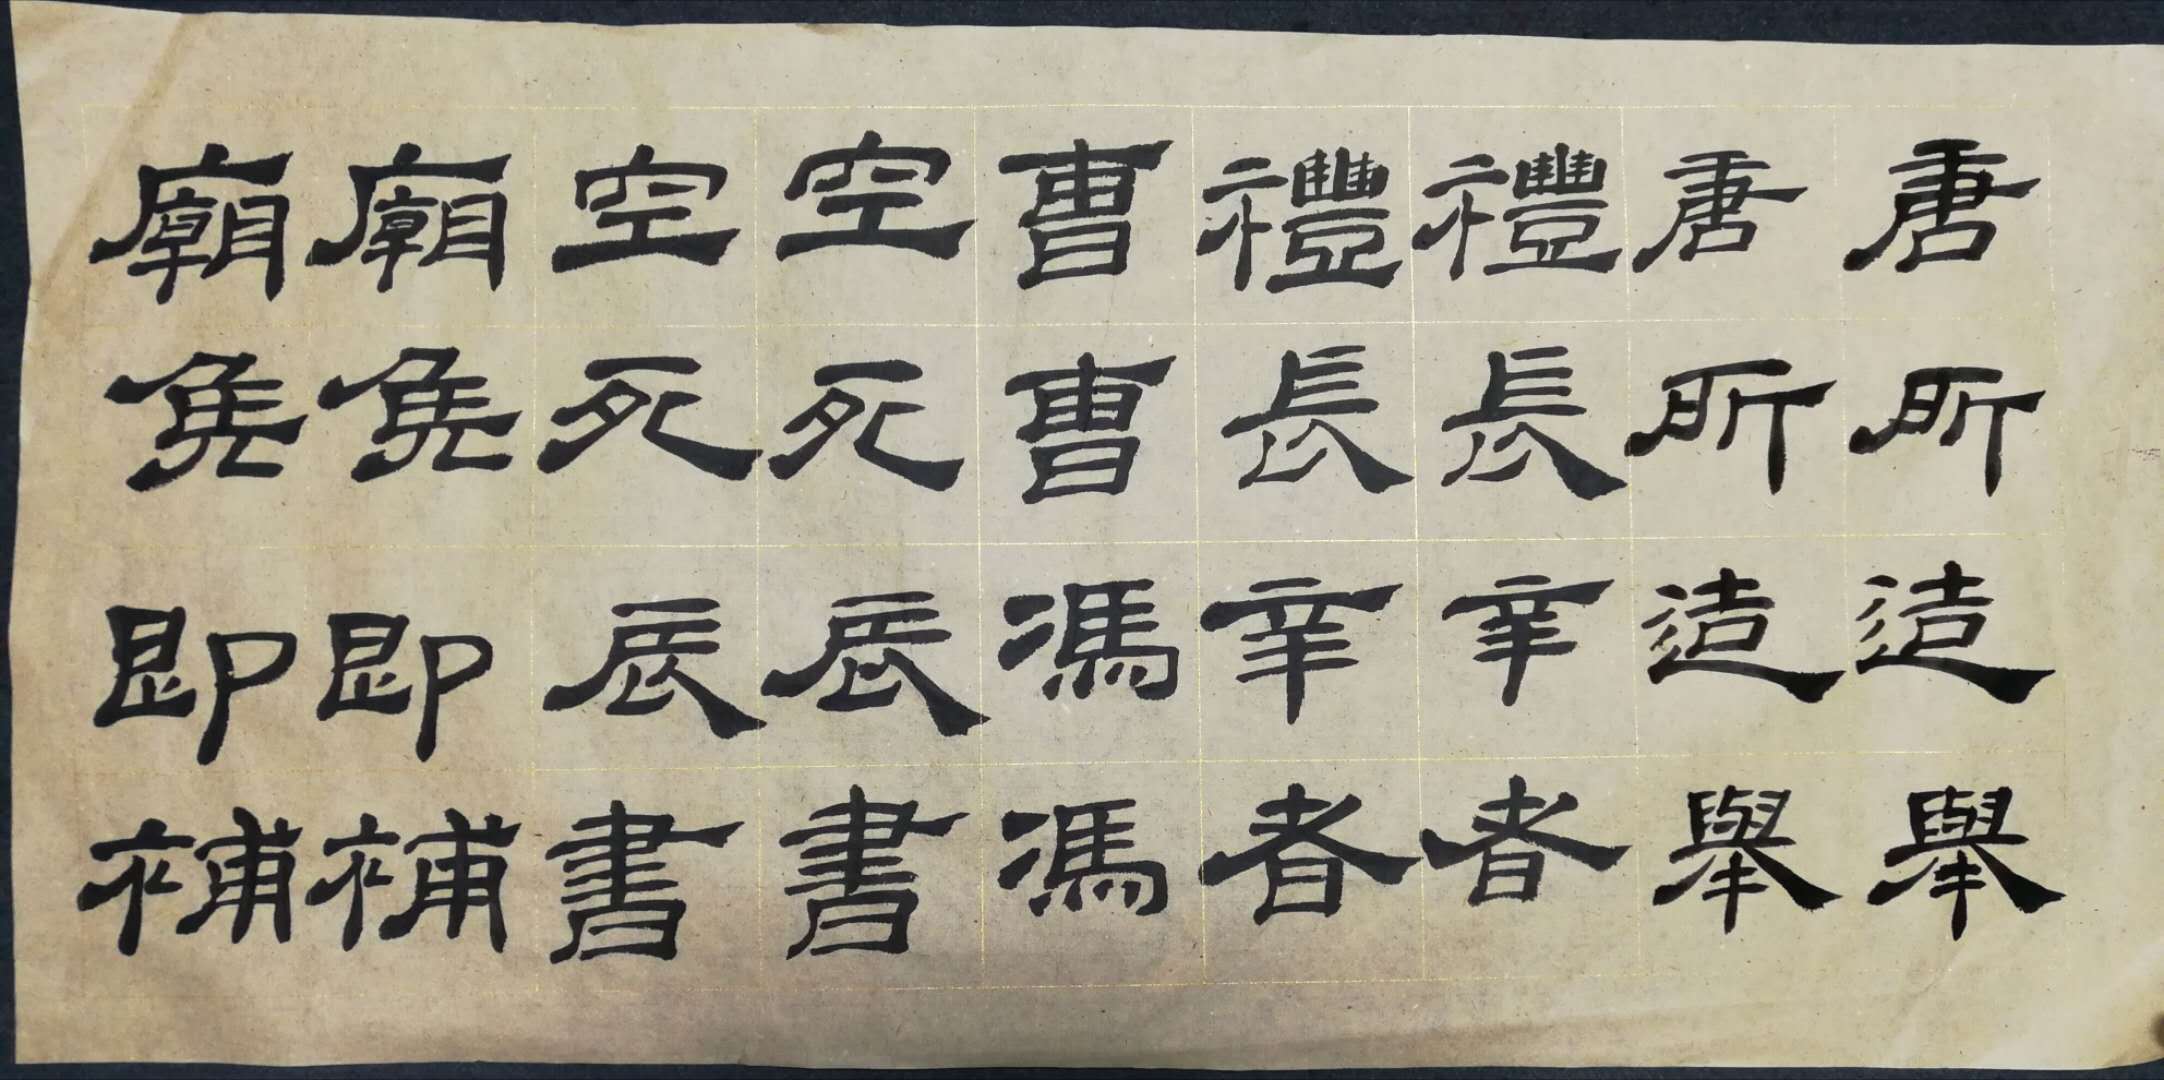 唐所造舉
唐所造舉
禮長辛者
禮長辛者
曹曹馮馮
空死辰書
空死辰書
廟即補
廟即補